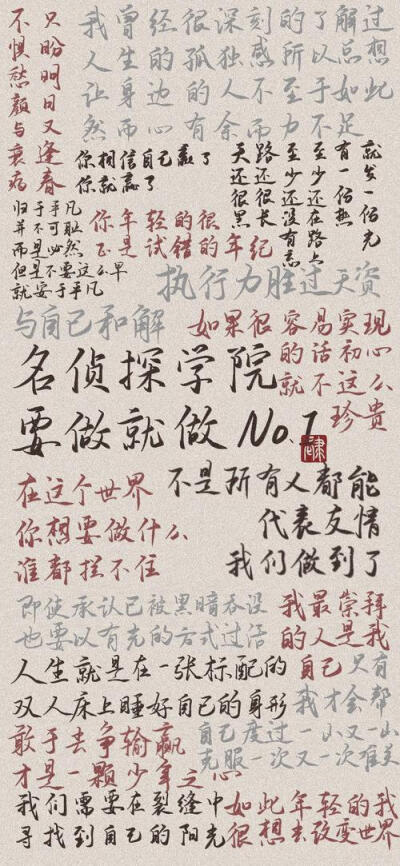 只盼明日又逢春
不惧愁颜与衰病
我曾经很深刻的了解过
人生的孤独感所以总想
让身边的人不至于如此
然而心有余而力不足
你相信自己赢了
你就赢了
天还很黑
路还很长
至少还没有忘
至少还在路上
有一佰热
就发一佰光
归于平凡
并不可耻
而是必然
但是不要这么早
就安于平凡
你年轻的很
正是试错的年纪
执行力胜过天资
与自己和解
如果很容易实现
的话初心
就不这么
珍贵
名侦探学院
要做就做 No.1
在这个世界
你想要做什么
谁都拦不住
不是所有人都能
代表友情
我们做到了
即使承认已被黑暗吞没
也要以有光的方式过活
我最崇拜
的人是我
自己
人生就是在一张标配的
双人床上睡好自己的身形
只有
我才会帮
自己度过一山又一山
克服一次又一次难关
敢于去争输赢
才是一颗少年之心
我们需要在裂缝中
寻找到自己的阳光
如此年轻的我
很想去改变世界